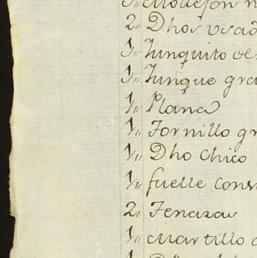 1,, Mollejon n
2,, Dhos usad
1,, Yunquito de
1,, Yunque gra
1,, Plana
1,, Tornillo gr
1,, Dho chico
1,, fuelle cons
2,, Tenazas
1,, Martillo